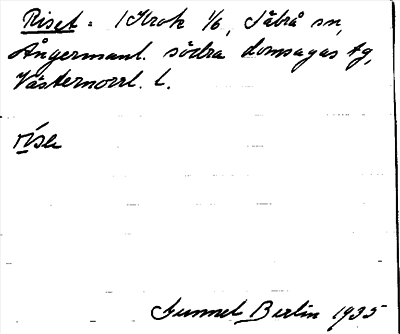 Riset. 1 Krok 1/6, Säbrå sn,
Ångermanl. södra domsagas tg,
Västernorrl. l.
rise
Gunnel Berlin 1935